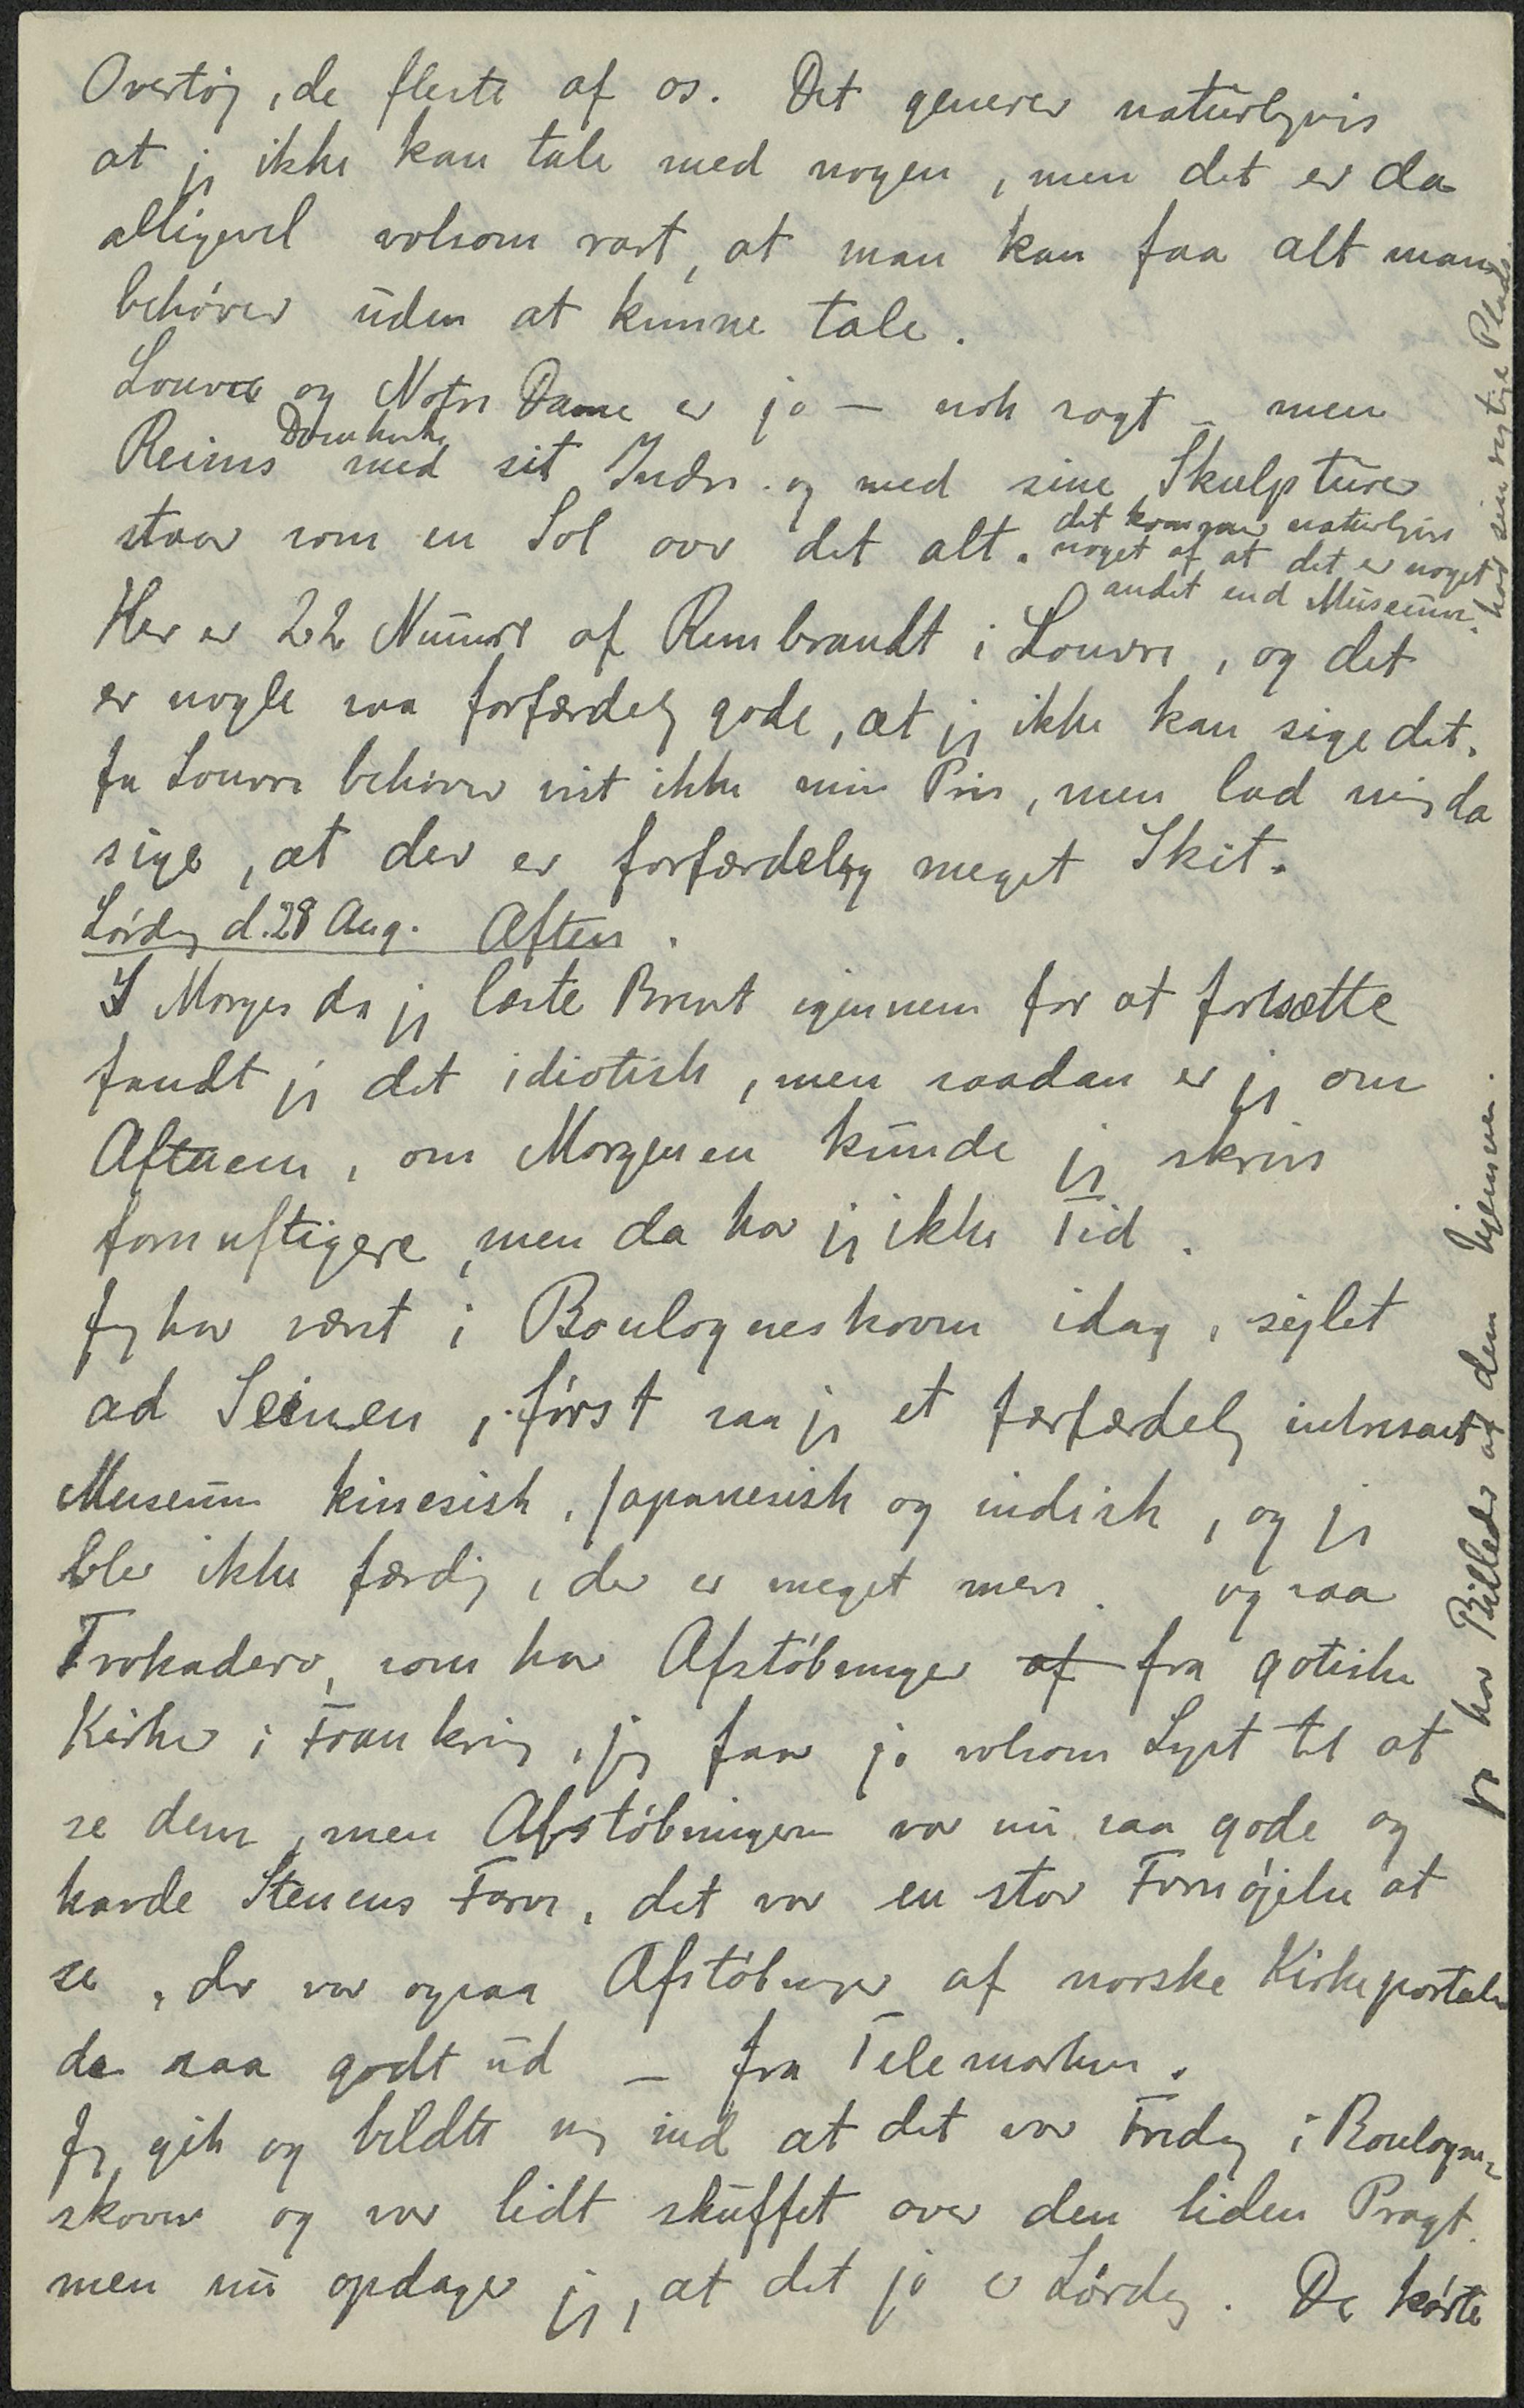 Overtøj, de fleste af os. Det generer naturligvis
at jeg ikke kan tale med nogen, men det er da
alligevel voldsom rart, at man kan faa alt man
behøver uden at kunne tale.
Louvre og Notre Dame er jo — nok sagt — men
Reims Domkirke med sit Indre og med sine Skulpturer
staar som en Sol over det alt. det kommer naturligvis
noget af at det er noget
andet end Museum.
Her er 22 Numre af Rembrandt i Louvre, og det
er nogle saa forfærdelig gode, at jeg ikke kan sige det.
Ja Louvre behøver vist ikke min Pris, men lad mig da
sige, at der er forfærdelig meget Skit.
Lørdag d. 28 Aug. Aften.
I Morges da jeg læste Brevet igennem for at fortsætte
fandt jeg det idiotisk, men saadan er jeg om
Aftenen, om Morgenen kunde jeg skrive
fornuftigere, men da har jeg ikke Tid.
Jeg har været i Boulogneskoven idag, sejlet
ad Seinen, først saa jeg et forfærdelig intresant
Museum kinesisk, japanesisk og indisk, og jeg
blev ikke færdig, der er meget mere. og saa
Trokadero, som har Afstøbninger af fra gotiske
Kirker i Frankrig, jeg faar jo voldsom Lyst til at
se dem, men Afstøbningerne var nu saa gode og
havde Stenens Farve, det var en stor Fornøjelse at
se, der var ogsaa Afstøbninger af norske Kirkeportaler
de saa godt ud — fra Telemarken.
Jeg gik og bildte mig ind at det var Fredag i Boulogne-
skoven og var lidt skuffet over den liden Pragt.
men nu opdager jeg, at det jo er Lørdag. De kørte
jeg har Billeder af dem hjemme.
paa sin rigtige Plads.